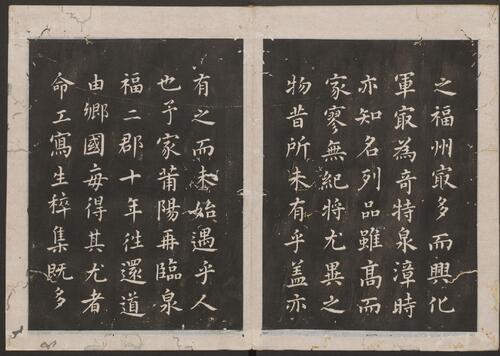 之福州㝡多而興化
軍㝡為奇特泉漳時
亦知名列品雖髙而
寂寥無紀將尤異之
物昔所未有乎盖亦
有之而未始遇乎人
也予家莆陽再臨泉
福二郡十年往還道
由鄉國每得其尤者
命工寫生稡集既多